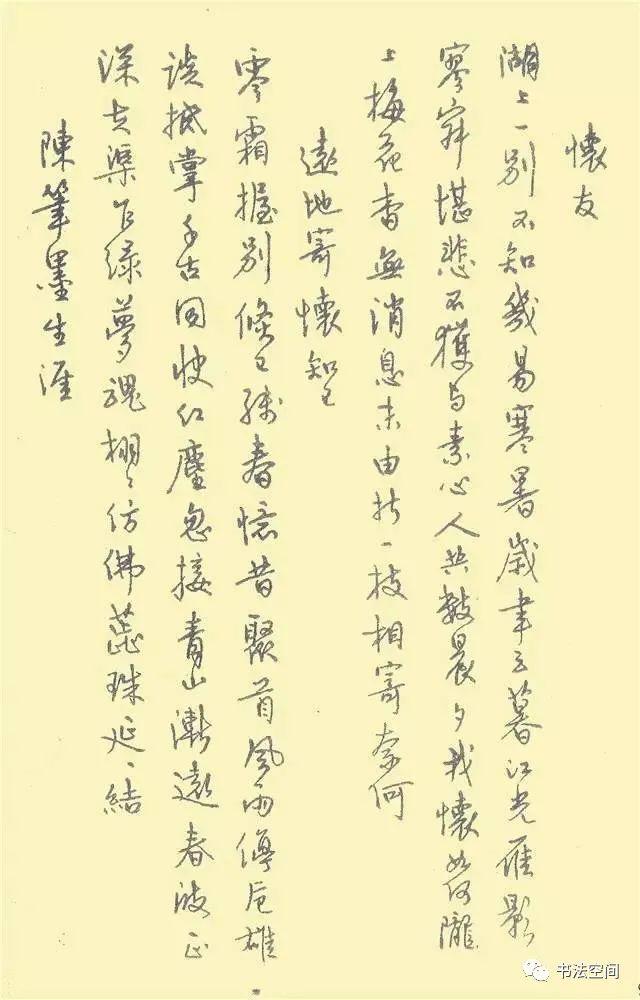 懷友
湖上一别不知幾易寒暑歲聿云暮江光雁影
寥寂堪悲不獲与素心人共數晨夕我懷如何隴
上梅花杳無消息未由折一枝相寄奈何
遠地寄懷知己
零霜握别倏已殘春憶昔聚首風雨傳卮雄
談抵掌千古同快红塵忽接青山漸遠春波正
深去渠乍绿夢魂栩々仿佛蕊珠延、結
陳筆墨生涯
书法空间